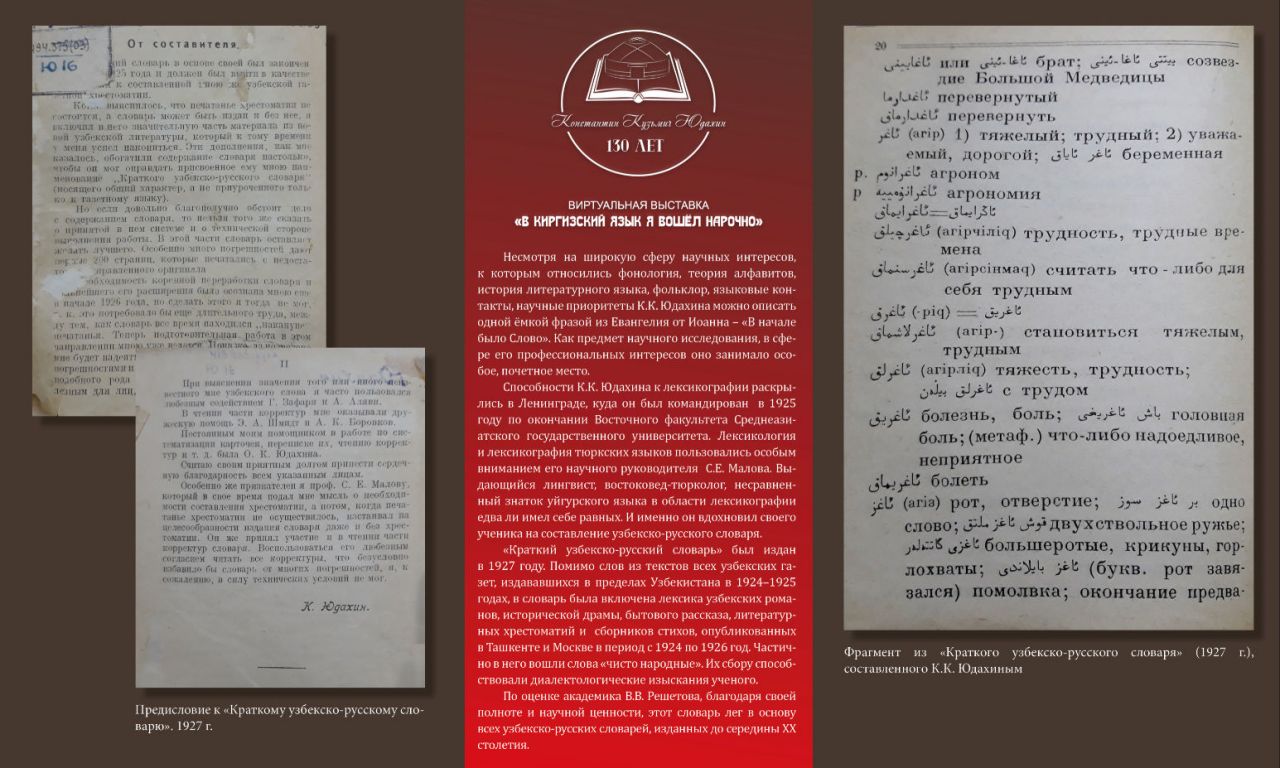 494.375(03)
Ю 16
От составителя.
словарь в основе своей был закончен
25 года и должен был выйти в качестве
к составленной мною же узбекской га-
хрестоматии.
выяснилось, что печатанье хрестоматии не
состоится, а словарь может быть издан и без нее, я
включил в него значительную часть материала из но-
вой узбекской литературы, который к тому времени
у меня успел накопиться. Эти дополнения, как мне
казалось, обогатили содержание словаря настолько,
чтобы он мог оправдать присвоенное ему мною наи-
менование „Краткого узбекско-русского словаря“
(носящего общий характер, а не приуроченного толь-
ко к газетному языку).
Но если довольно благополучно обстоит дело
с содержанием словаря, то нельзя того же сказать
о принятой в нем системе и о технической стороне
выполнения работы. В этой части словарь оставляет
желать лучшего. Особенно много погрешностей дают
первые 200 страниц, которые печатались с недоста-
оригинала
необходимость коренной переработки словаря и
расширения его была осознана мною еще
в начале 1926 года, но сделать этого я тогда не мог,
т. к. это потребовало бы еще длительного труда, меж-
ду тем, как словарь все время находился „накануне“
печатанья. Теперь подготовительная работа в этом
направлении мною уже ведется.
мне будет
погрешностями
подобного рода
лезным для лиц,
II
При выяснении значения того или иного неиз-
вестного мне узбекского слова я часто пользовался
любезным содействием Г. Зафари и А. Аляви.
В чтении части корректур мне оказывали дру-
жескую помощь Э. А. Шмидт и А. К. Боровков.
Постоянным моим помощником в работе по сис-
тематизации карточек, переписке их, чтению коррек-
тур и т. д. была О. К. Юдахина.
Считаю своим приятным долгом принести сердеч-
ную благодарность всем указанным лицам.
Особенно же признателен я проф. С. Е. Малову,
который в свое время подал мне мысль о необходи-
мости составления хрестоматии, а потом, когда печа-
танье хрестоматии не осуществилось, настаивал на
целесообразности издания словаря даже и без хрес-
томатии. Он же принял участие и в чтении части
корректур словаря. Воспользоваться его любезным
согласием читать все корректуры, что безусловно
избавило бы словарь от многих погрешностей, я, к
сожалению, в силу технических условий не мог.
К. Юдахин.
Предисловие к «Краткому узбекско-русскому сло-
варю». 1927 г.
Константин Кузьмич Юдахин
130 ЛЕТ
ВИРТУАЛЬНАЯ ВЫСТАВКА
«В КИРГИЗСКИЙ ЯЗЫК Я ВОШЁЛ НАРОЧНО»
Несмотря на широкую сферу научных интересов,
к которым относились фонология, теория алфавитов,
история литературного языка, фольклор, языковые кон-
такты, научные приоритеты К.К. Юдахина можно описать
одной ёмкой фразой из Евангелия от Иоанна – «В начале
было Слово». Как предмет научного исследования, в сфе-
ре его профессиональных интересов оно занимало осо-
бое, почетное место.
Способности К.К. Юдахина к лексикографии раскры-
лись в Ленинграде, куда он был командирован в 1925
году по окончании Восточного факультета Среднеази-
атского государственного университета. Лексикология
и лексикография тюркских языков пользовались особым
вниманием его научного руководителя С.Е. Малова. Вы-
дающийся лингвист, востоковед-тюрколог, несравнен-
ный знаток уйгурского языка в области лексикографии
едва ли имел себе равных. И именно он вдохновил своего
ученика на составление узбекско-русского словаря.
«Краткий узбекско-русский словарь» был издан
в 1927 году. Помимо слов из текстов всех узбекских га-
зет, издававшихся в пределах Узбекистана в 1924–1925
годах, в словарь была включена лексика узбекских рома-
нов, исторической драмы, бытового рассказа, литератур-
ных хрестоматий и сборников стихов, опубликованных
в Ташкенте и Москве в период с 1924 по 1926 год. Частич-
но в него вошли слова «чисто народные». Их сбору способ-
ствовали диалектологические изыскания ученого.
По оценке академика В.В. Решетова, благодаря своей
полноте и научной ценности, этот словарь лег в основу
всех узбекско-русских словарей, изданных до середины XX
столетия.
20
ئاغاينى или ئاغا-ئينى брат; يىتتى ئاغا-ئينى созвез-
дие Большой Медведицы
ئاغدارما перевернутый
ئاغدارماق перевернуть
ئاغر (aгip) 1) тяжелый; трудный; 2) уважа-
емый, дорогой; ئاغر ئاياق беременная
р. ئاغرانوم агроном
р ئاغرانومىيە агрономия
ئاغرايماق=ئاڭرايماق
ئاغرچىلق (aгipчiлiq) трудность, трудные вре-
мена
ئاغرسنماق (aгipciнмaq) считать что-либо для
себя трудным
ئاغرق (-piq) = ئاغريق
ئاغرلاشماق (aгip-) становиться тяжелым,
трудным
ئاغرلق (aгipлiq) тяжесть, трудность;
ئاغرلق بيلەن с трудом
ئاغريق болезнь, боль; باش ئاغريغى головная
боль; (метаф.) что-либо надоедливое,
неприятное
ئاغريماق болеть
ئاغز (aгiз) рот, отверстие; بر ئاغز سوز одно
слово; قوش ئاغز ملتق двухствольное ружье;
большеротые, крикуны, гор-
лохваты; ئاغز بايلاندى (букв. рот завя-
зался) помолвка; окончание предва-
Фрагмент из «Краткого узбекско-русского словаря» (1927 г.),
составленного К.К. Юдахиным